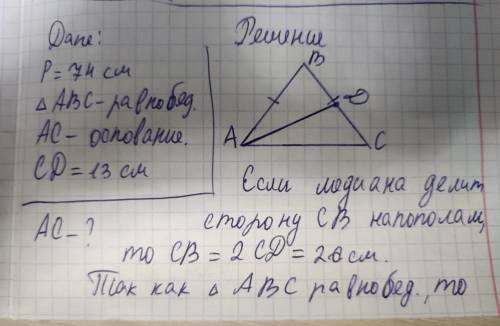 Дано:
P = 74 см
△ ABC - равнобед.
AC - основание.
CD = 13 см
AC - ?
Решение
B
D
A
C
Если медиана делит
сторону CB напополам,
то CB = 2 CD = 26 см.
Так как △ ABC равнобед., то